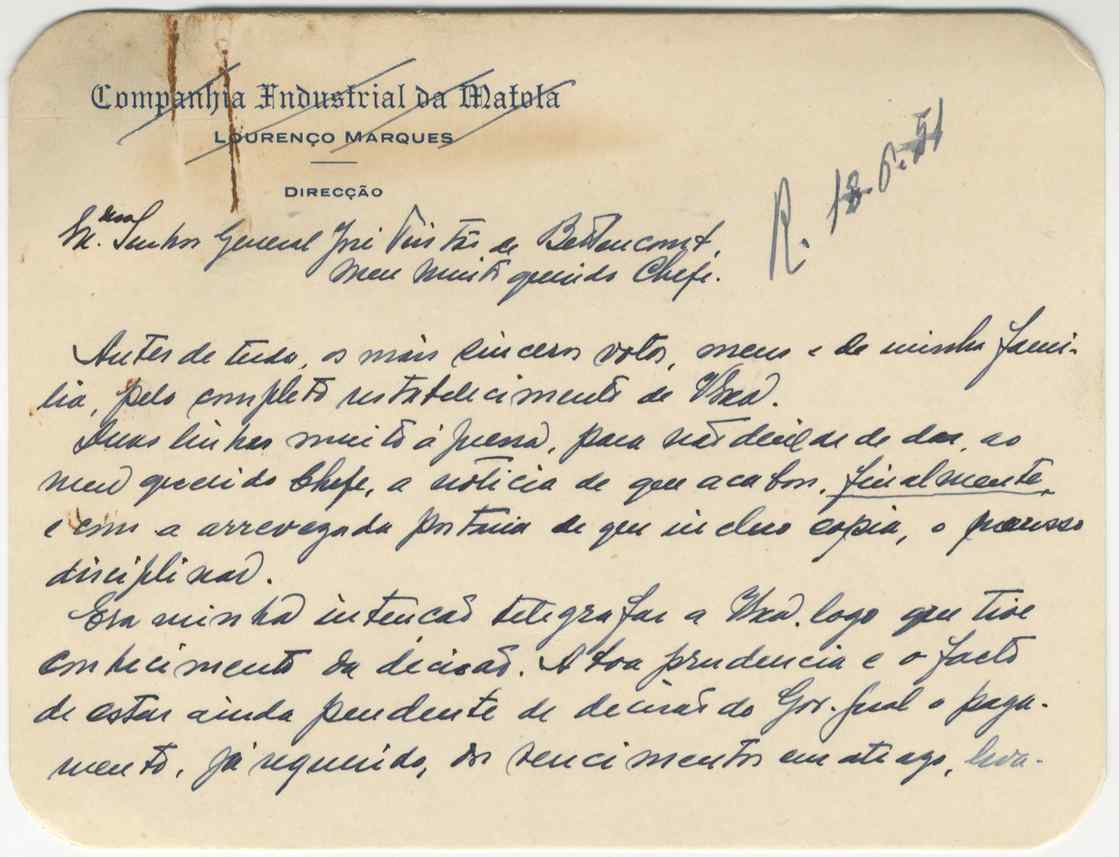 Companhia Industrial da Matola
LOURENÇO MARQUES
DIRECÇÃO
R. 18.6.51
Senhor General José Tristão de Bettencourt.
Meu muito querido Chefe.
Antes de tudo, os mais sinceros votos, meus e de minha fami-
lia, pelo completo restabelecimento de VExa.
Duas linhas muito á pressa, para não deixar de dar, ao
meu querido Chefe, a noticia de que acabou, finalmente,
e com a arrevezada portaria de que incluo copia, o processo
disciplinar.
Era minha intenção telegrafar a VExa. logo que tive
conhecimento da decisão. A boa prudencia e o facto
de estar ainda pendente de decisão do Gov. Geral o paga-
mento, já requerido, dos vencimentos em atrazo, leva-